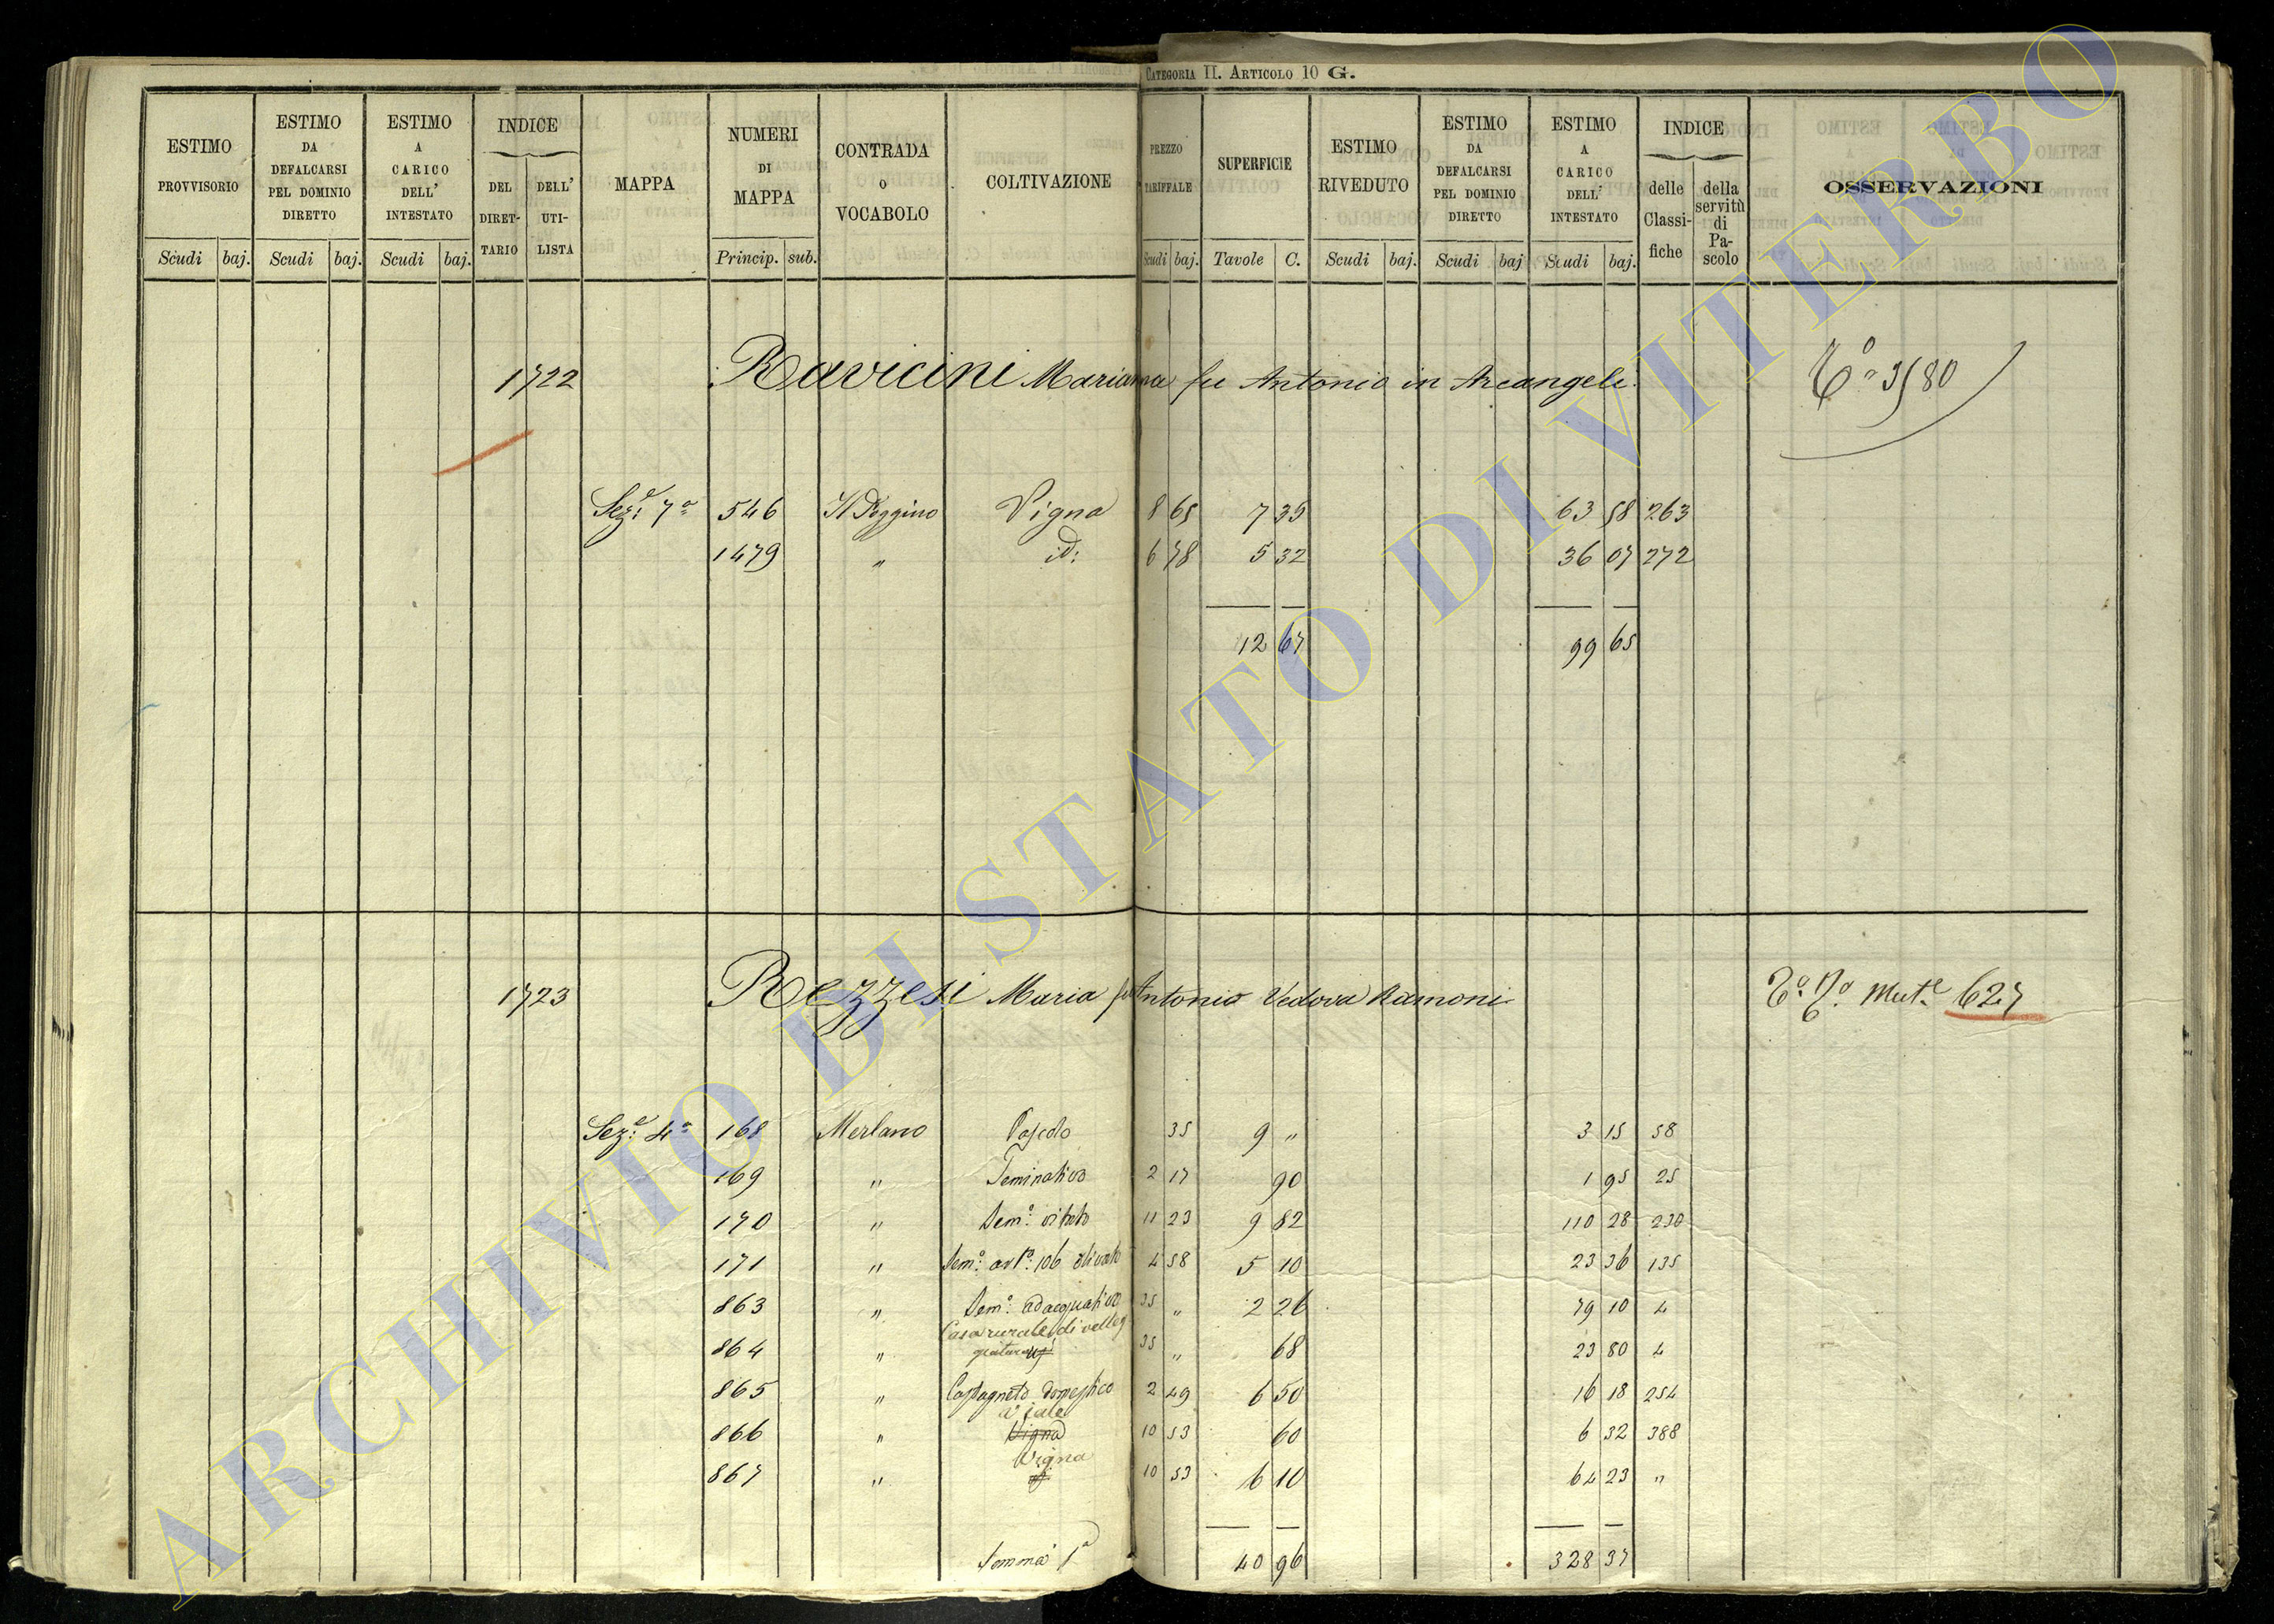 CATEGORIA II. ARTICOLO 10 G.
ESTIMO PROVVISORIO Scudi baj.
ESTIMO DA DEFALCARSI PEL DOMINIO DIRETTO Scudi baj.
ESTIMO A CARICO DELL' INTESTATO Scudi baj.
INDICE DEL DIRET-TARIO DELL' UTI-LISTA
MAPPA
NUMERI DI MAPPA Princip. sub.
CONTRADA O VOCABOLO
COLTIVAZIONE
PREZZO TARIFFALE Scudi baj.
SUPERFICIE Tavole C.
ESTIMO RIVEDUTO Scudi baj.
ESTIMO DA DEFALCARSI PEL DOMINIO DIRETTO Scudi baj
ESTIMO A CARICO DELL' INTESTATO Scudi baj.
INDICE delle Classi-fiche della servitù di Pa-scolo
OSSERVAZIONI
1722 Ravicini Marianna fu Antonio in Arcangeli
Sez.e 7a 546 Il Poggino Vigna 8 65 7 35 63 58 263
1479 " id: 6 78 5 32 36 07 272
12 67 99 65
1723 Rezzesi Maria fu Antonio Vedova Ramoni Mut.e 627
Sez.e 4a 168 Merlano Pascolo 35 9 " 3 15 58
169 " Seminativo 2 17 90 1 95 25
170 " Sem.o vitato 11 23 9 82 110 28 230
171 " Sem.o 106 olivato 4 58 5 10 23 36 135
863 " Sem.o adacquativo 35 " 2 26 79 10 4
864 " Casa rurale di villeggiatura 35 " 68 23 80 4
865 " Castagneto domestico 2 49 6 50 16 18 254
a jale
866 " Vigna 10 53 60 6 32 388
Vigna
867 " 10 53 6 10 64 23 "
Somma 1a 40 96 328 37
ARCHIVIO DI STATO DI VITERBO